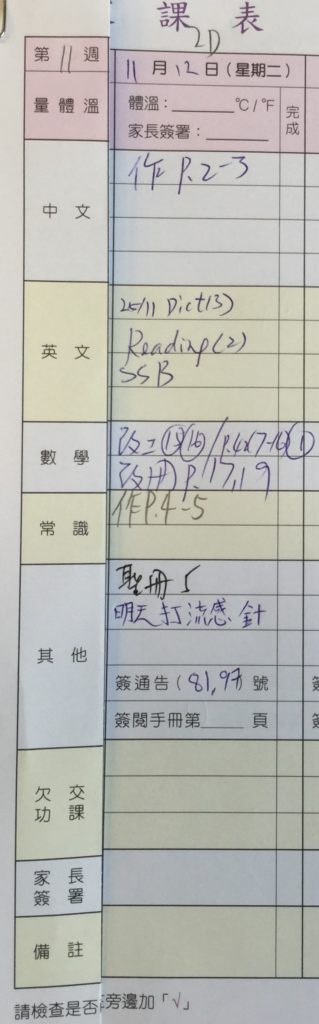 課表
2D
第 11 週
11 月 12 日 (星期二)
量體溫
體溫：______ °C / °F
家長簽署：______
完成
中文
作 P.2-3
英文
25/11 Dict(3)
Reading(2)
SSB
數學
改二(15)(16)/P.4x(7-10)(1)
改冊 P.17,19
常識
作P.4-5
其他
聖冊 5
明天打流感針
簽通告 (81,97) 號
簽閱手冊第____頁
欠交功課
家長簽署
備註
請檢查是否
旁邊加「√」